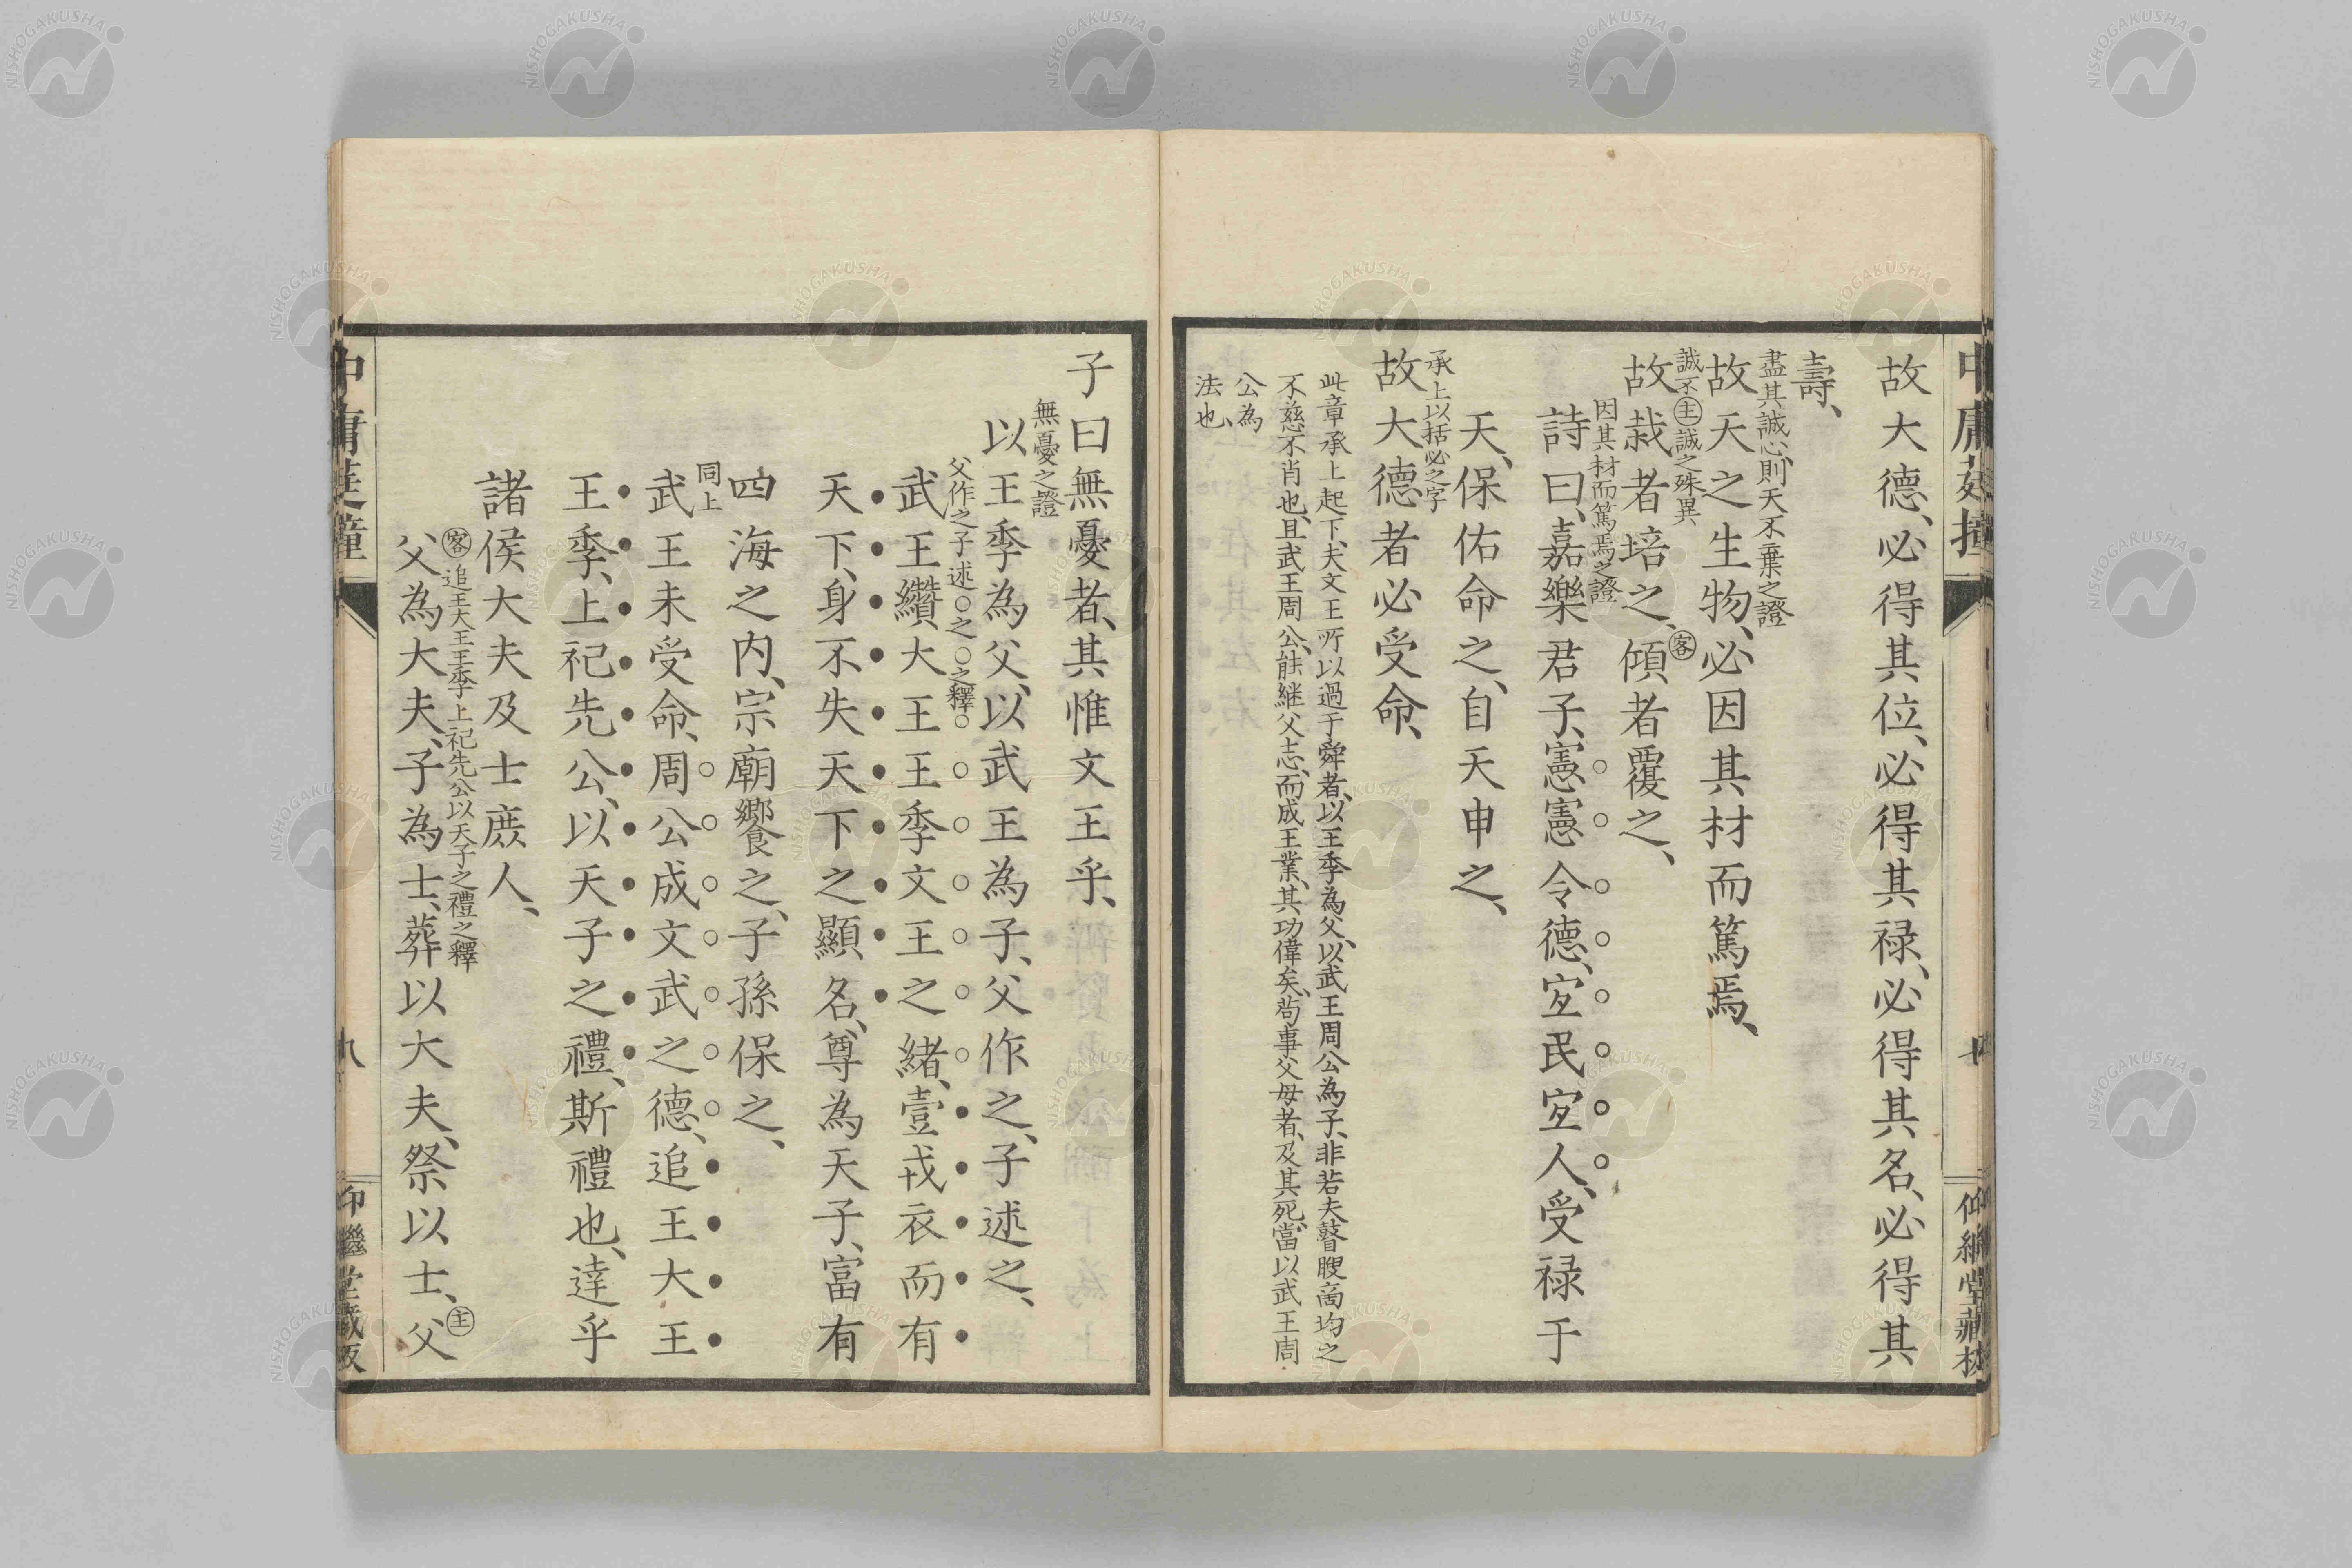 故大德、必得其位、必得其禄、必得其名、必得其
壽、
盡其誠心、則天不棄之證
故天之生物、必因其材而篤焉、
誠不㊤誠之殊異
故栽者培之、傾者覆之、
客
因其材而篤焉之證
詩曰、嘉樂君子、憲憲令德、宜民宜人、受禄于
天、保佑命之、自天申之、
承上以括必之字
故大德者必受命、
此章承上起下、夫文王所以過于舜者、以王季為父、以武王周公為子、非若夫瞽瞍商均之
不慈不肖也、且武王周公、能継父志、而成王業、其功偉矣、苟事父母者、及其死、當以武王周
公為
法也、
子曰無憂者、其惟文王乎、
無憂之證
以王季為父、以武王為子、父作之、子述之、
父作之子述○之○之釋○
武王纘大王王季文王之緒、壹戎衣而有
天下、身不失天下之顯名、尊為天子、富有
四海之内、宗廟饗之、子孫保之、
同上
武王未受命、周公成文武之德、追王大王
王季、上祀先公、以天子之禮、斯禮也、達乎
諸侯大夫及士庶人、
客追王大王王季上祀先公以天子之禮之釋
父為大夫、子為士、葬以大夫、祭以士、父
主
九
NISHOGAKUSHA